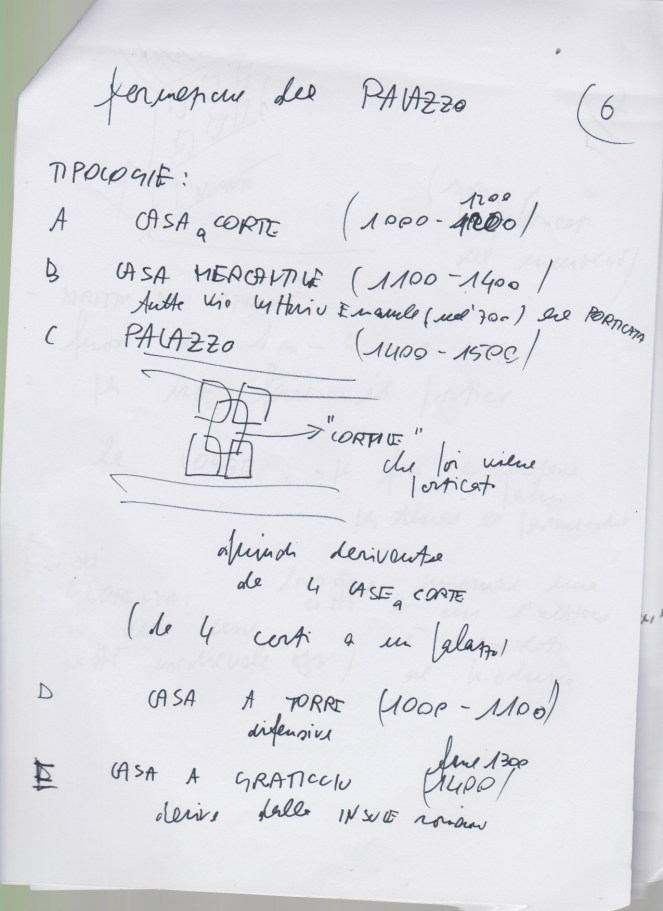 formazione del PALAZZO (6
TIPOLOGIE:
1200
A CASA a CORTE (1000-1200)
B CASA MERCANTILE (1100-1400)
tutta via Vittorio Emanuele (nel '700) era PORTICATA
C PALAZZO (1400-1500)
"CORTILE"
che poi viene
porticato
quindi derivante
da 4 CASE a CORTE
(da 4 corti a un palazzo)
D CASA A TORRE (1000-1100)
difensive
fine 1300
E CASA A GRATICCIO (1400)
deriva dalle INSULE romane